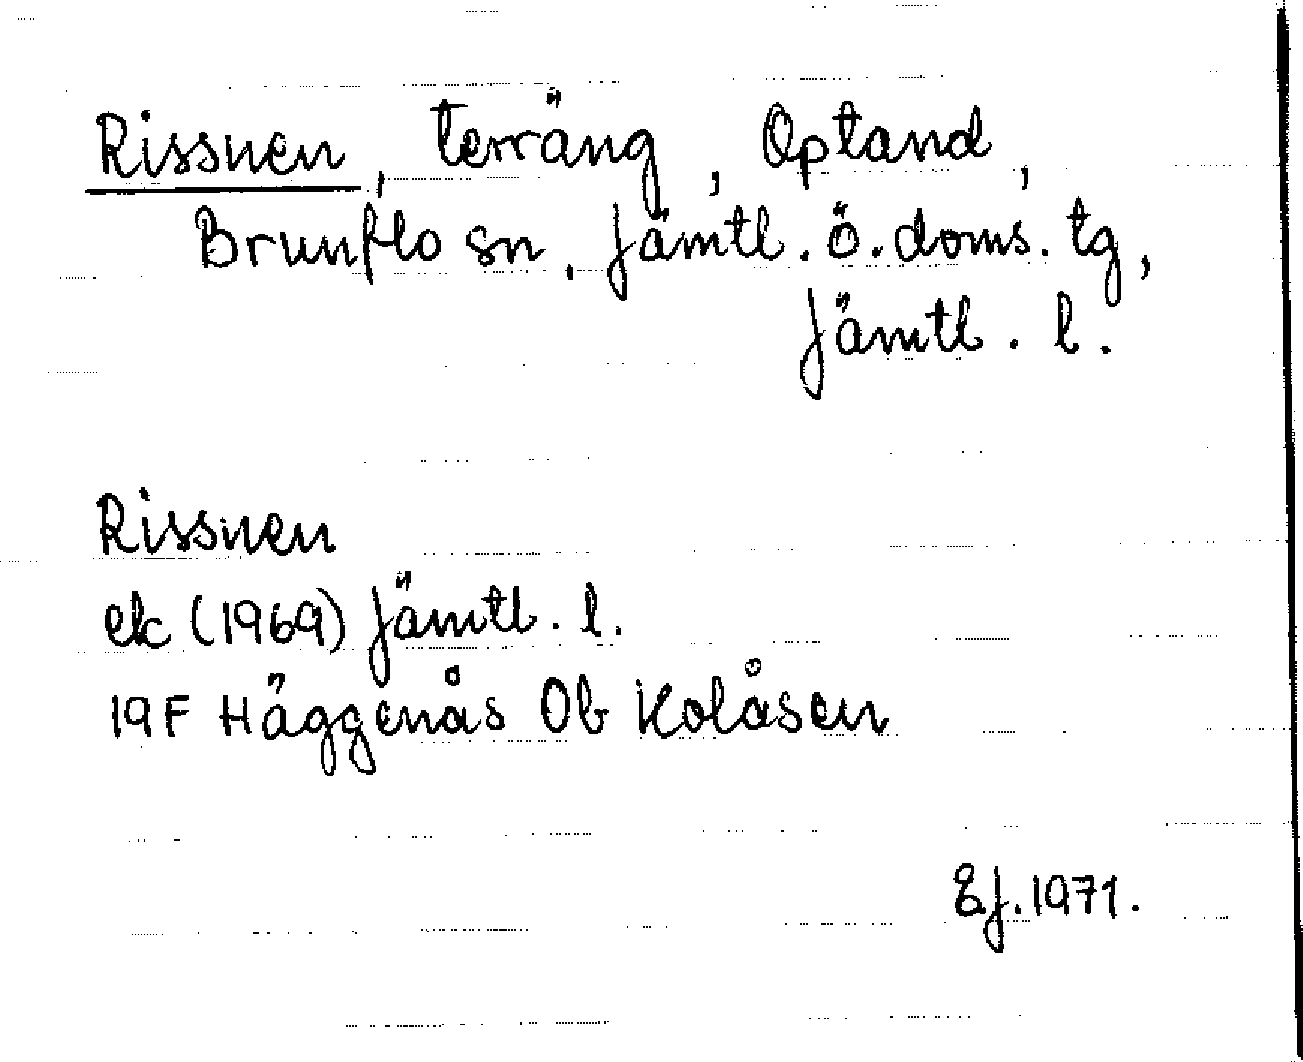 Rissnen, terräng, Optand,
Brunflo sn, Jämtl. ö. doms. tg,
Jämtl. l.
Rissnen
ek (1969) Jämtl. l.
19F Häggenås Ob Kolåsen
EJ. 1971.